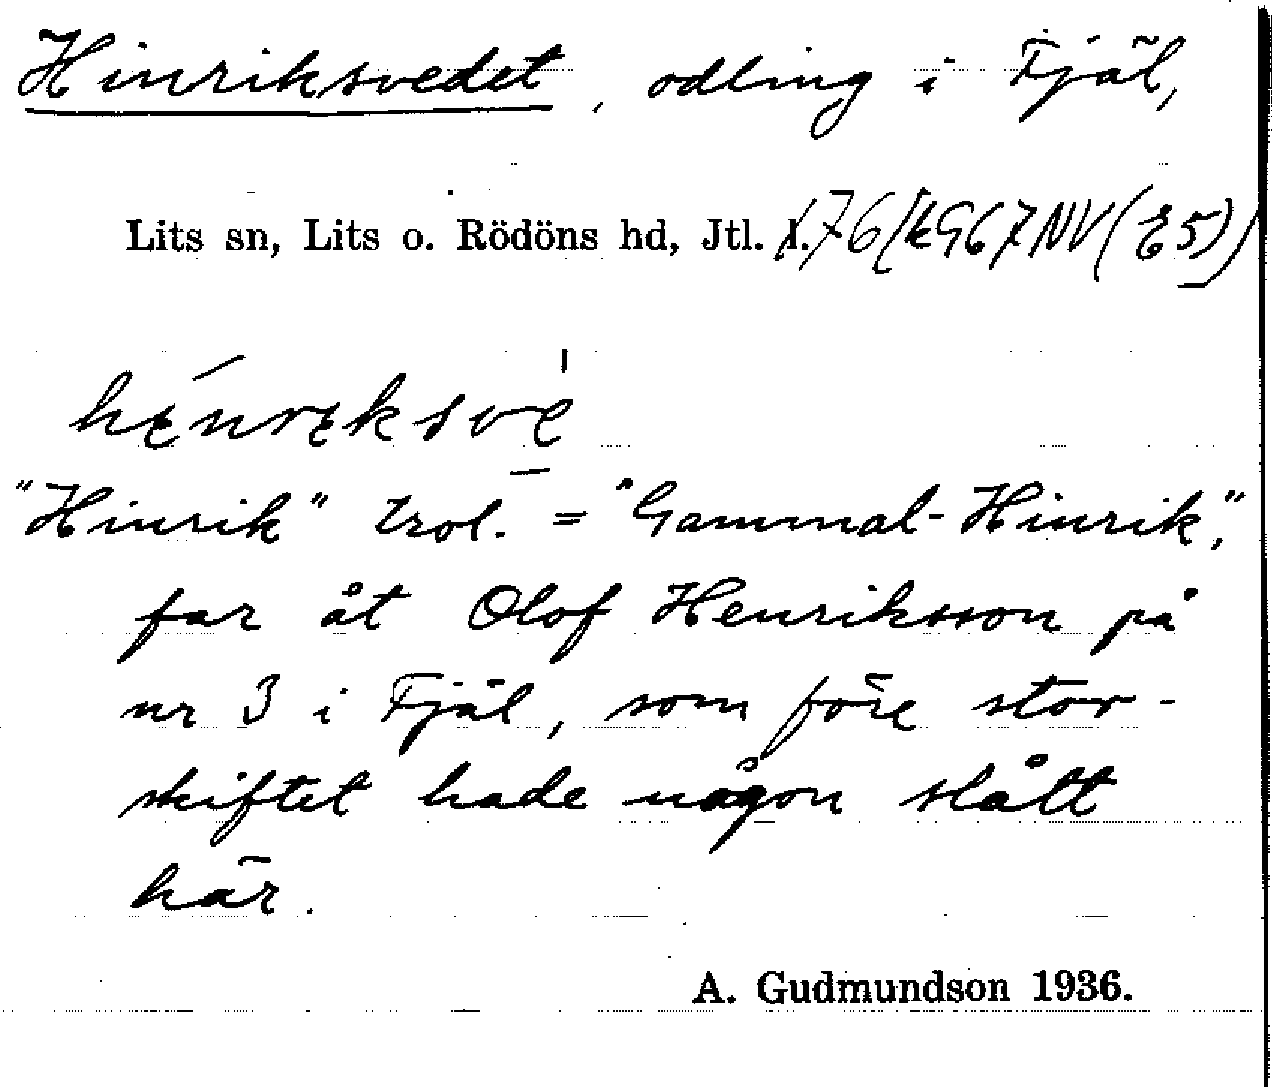 Hinriksvedet, odling i Fjäl,
Lits sn, Lits o. Rödöns hd, Jtl.
hinriksve
"Hinrik" trol. = "Gammal-Hinrik",
far åt Olof Henriksson på
nr 3 i Fjäl, som före stor-
skiftet hade någon slått
här.
A. Gudmundson 1936.